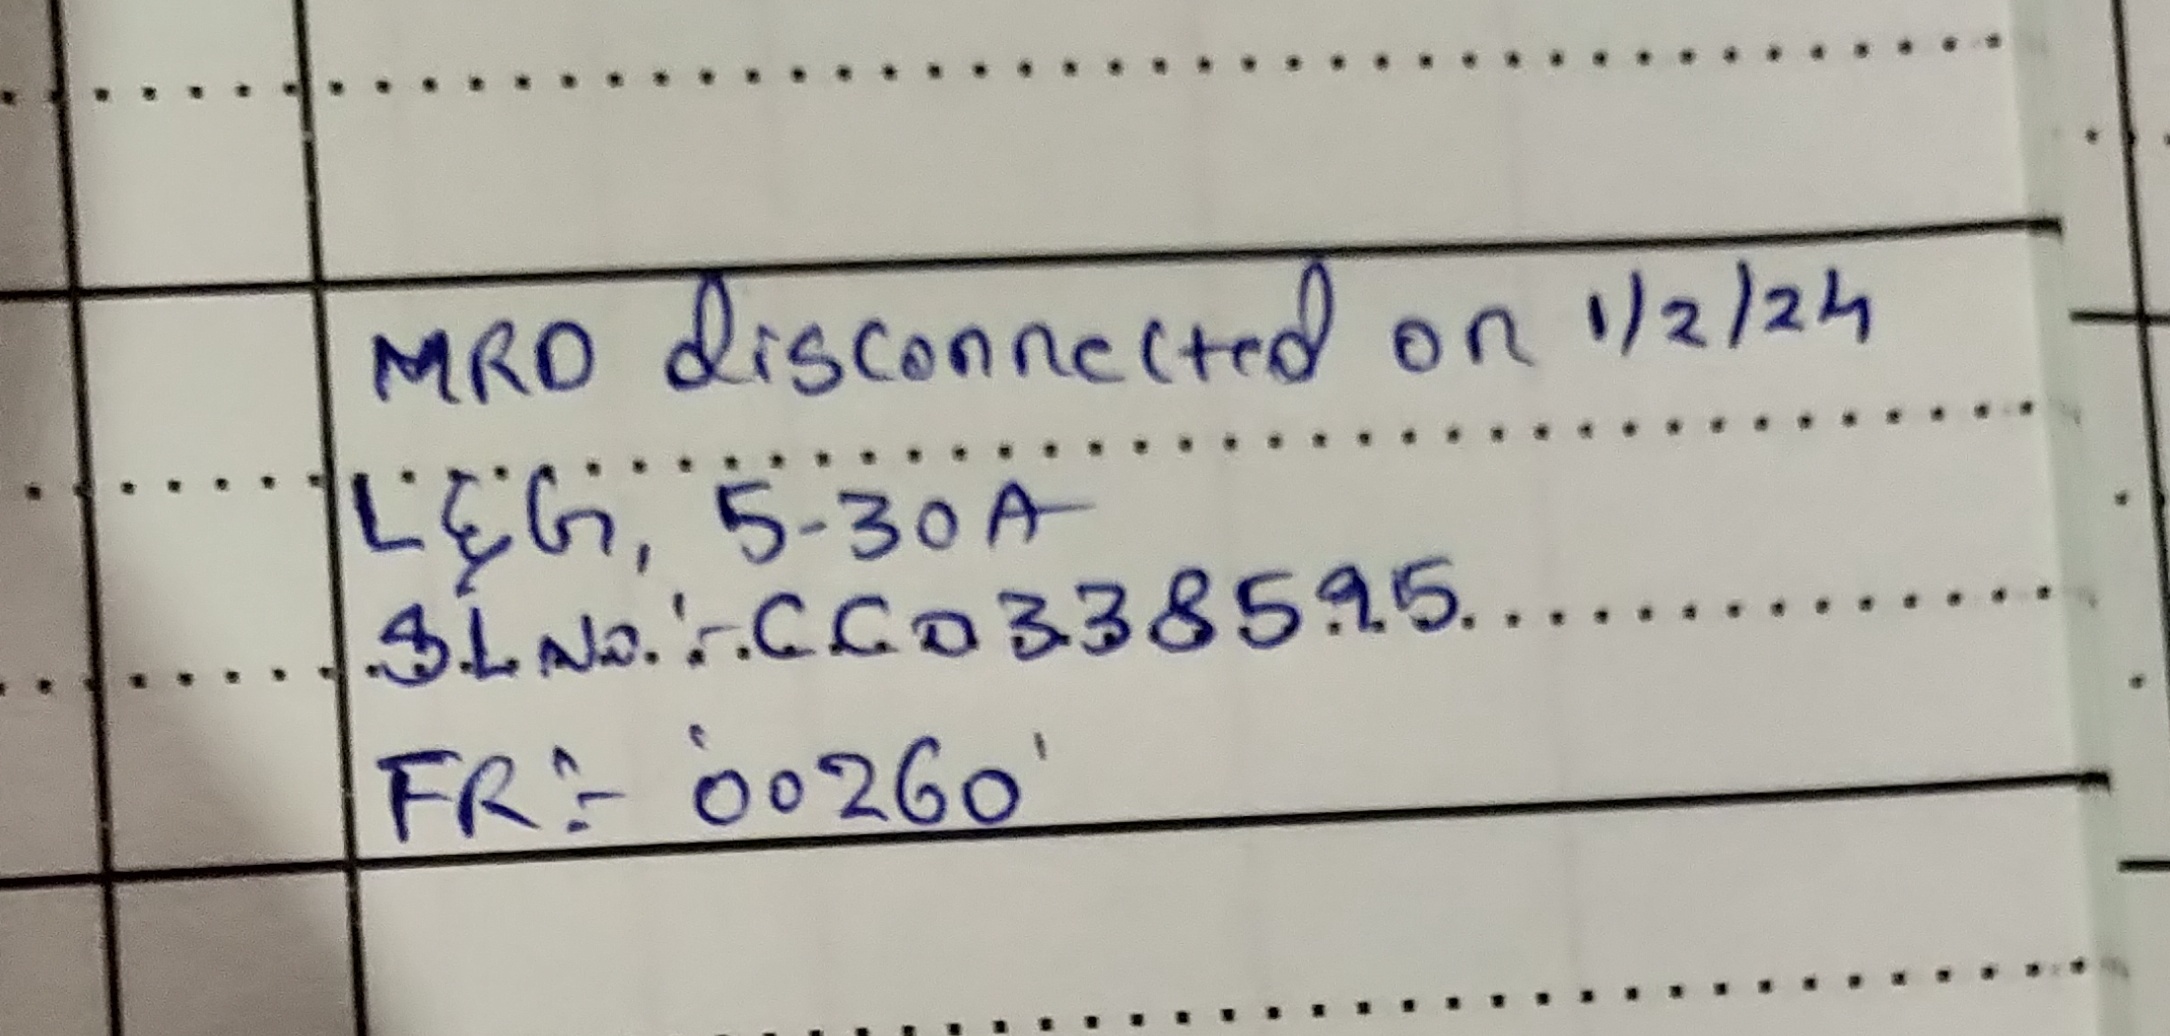 MRD disconnected on 1/2/24
L&G, 5-30A
SL No.:- CC0338595
FR:- '00260'